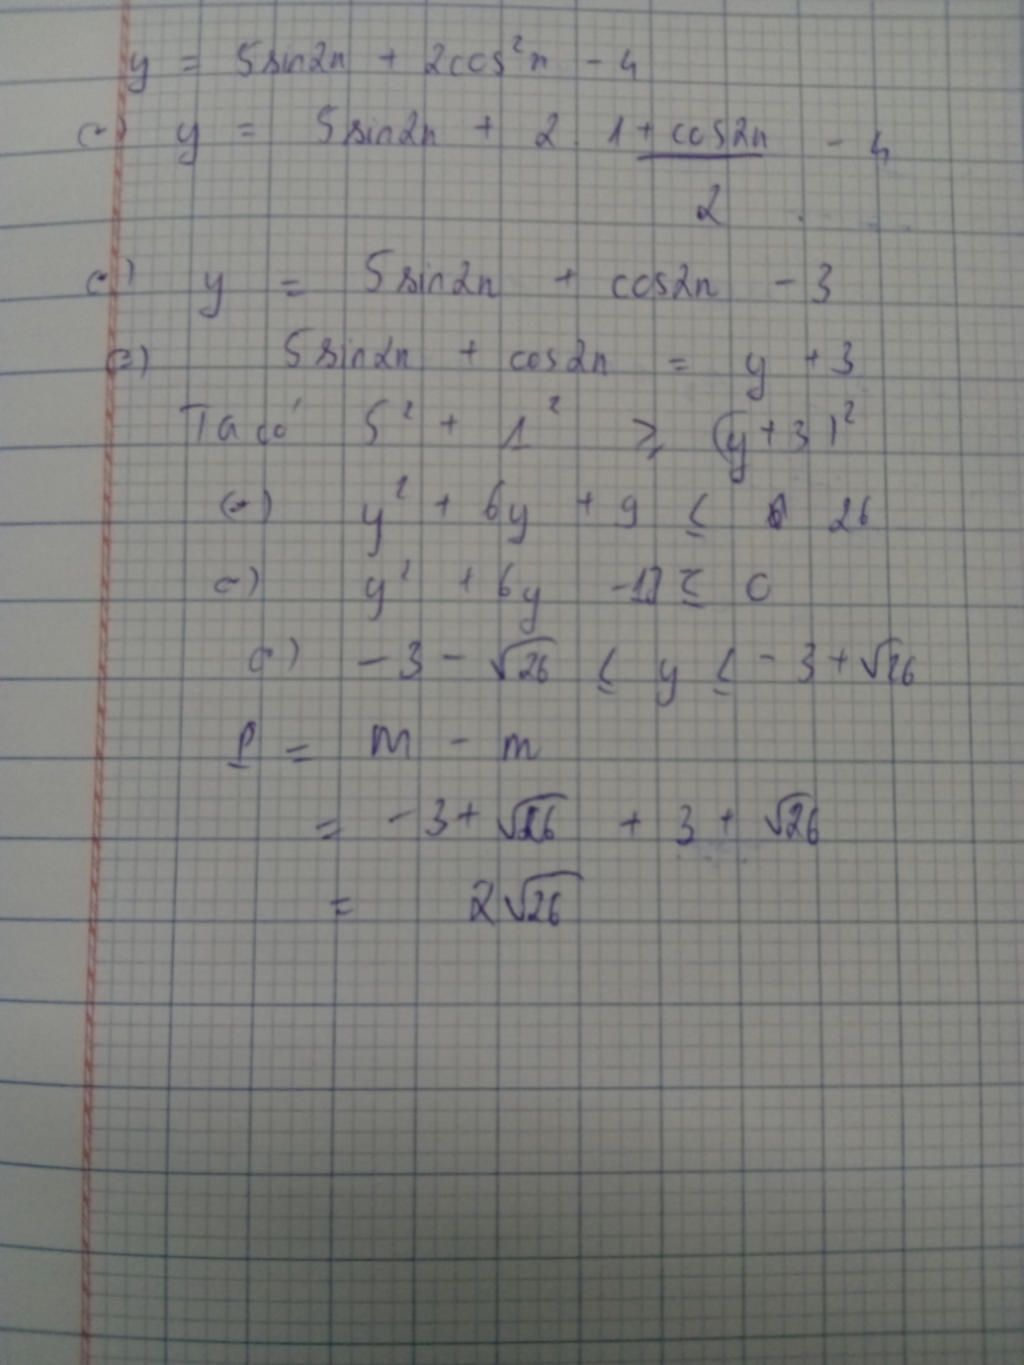 y = 5sin2x + 2cos²x - 4
(=) y = 5sin2x + 2. (1 + cos2x)/2 - 4
(=) y = 5sin2x + cos2x - 3
(=) 5sin2x + cos2x = y + 3
Ta có 5² + 1² ≥ (y + 3)²
(=) y² + 6y + 9 ≤ 26
(=) y² + 6y - 17 ≤ 0
(=) -3 - √26 ≤ y ≤ -3 + √26
P = M - m
= -3 + √26 + 3 + √26
= 2√26